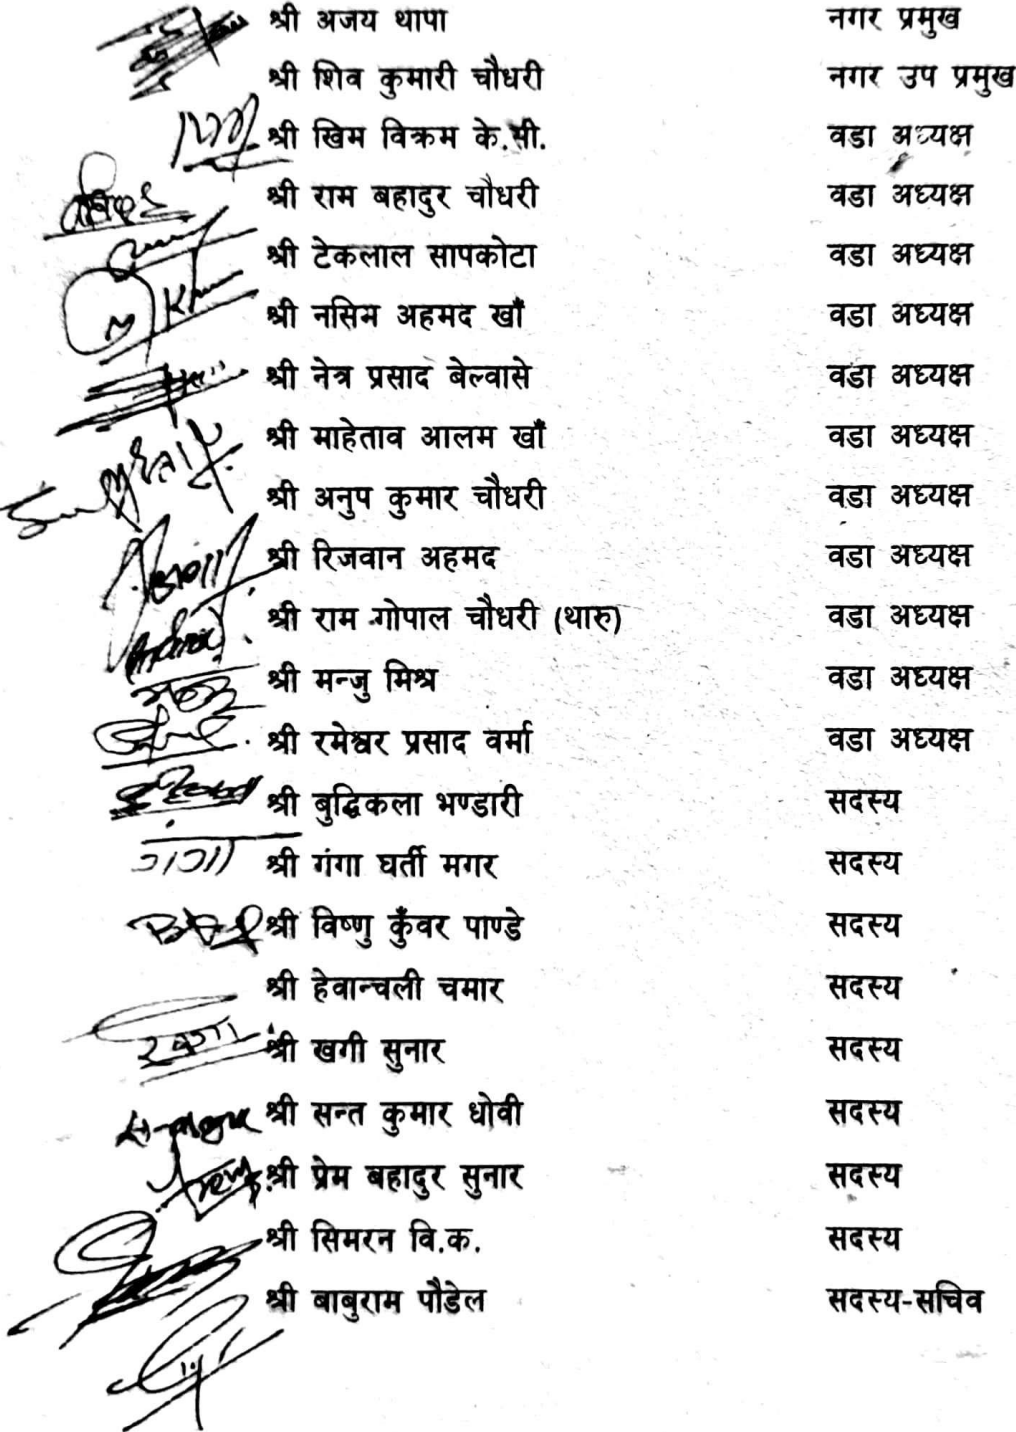 श्री अजय थापा नगर प्रमुख
श्री शिव कुमारी चौधरी नगर उप प्रमुख
श्री खिम विक्रम के.सी. वडा अध्यक्ष
श्री राम बहादुर चौधरी वडा अध्यक्ष
श्री टेकलाल सापकोटा वडा अध्यक्ष
श्री नसिम अहमद खाँ वडा अध्यक्ष
श्री नेत्र प्रसाद बेल्वासे वडा अध्यक्ष
श्री माहेताव आलम खाँ वडा अध्यक्ष
श्री अनुप कुमार चौधरी वडा अध्यक्ष
श्री रिजवान अहमद वडा अध्यक्ष
श्री राम गोपाल चौधरी (थारु) वडा अध्यक्ष
श्री मन्जु मिश्र वडा अध्यक्ष
श्री रमेश्वर प्रसाद वर्मा वडा अध्यक्ष
श्री बुद्धिकला भण्डारी सदस्य
गंगा श्री गंगा घर्ती मगर सदस्य
श्री विष्णु कुँवर पाण्डे सदस्य
श्री हेवान्चली चमार सदस्य
श्री खगी सुनार सदस्य
श्री सन्त कुमार धोवी सदस्य
श्री प्रेम बहादुर सुनार सदस्य
श्री सिमरन वि.क. सदस्य
श्री बाबुराम पौडेल सदस्य-सचिव